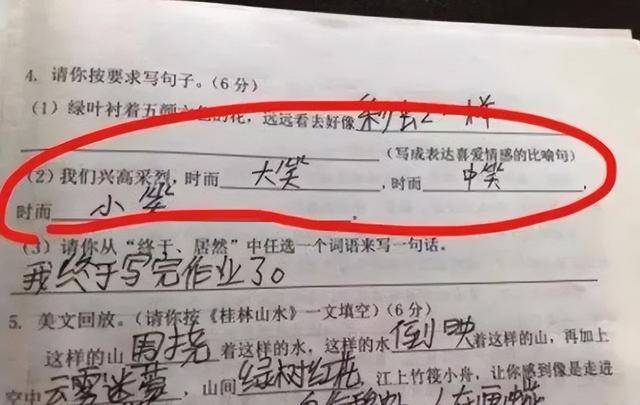 4. 请你按要求写句子。(6分)
(1) 绿叶衬着五颜六色的花, 远远看去好像 一样
(写成表达喜爱情感的比喻句)
(2) 我们兴高采烈, 时而 大笑 , 时而 中笑 ,
时而 小笑 。
(3) 请你从“终于、居然”中任选一个词语来写一句话。
我终于写完作业了。
5. 美文回放。(请你按《桂林山水》一文填空)(6分)
这样的山 围挠 着这样的水, 这样的水 倒映 着这样的山, 再加上
空中 云雾迷蒙 , 山间 绿树红花 , 江上竹筏小舟, 让你感到像是走进